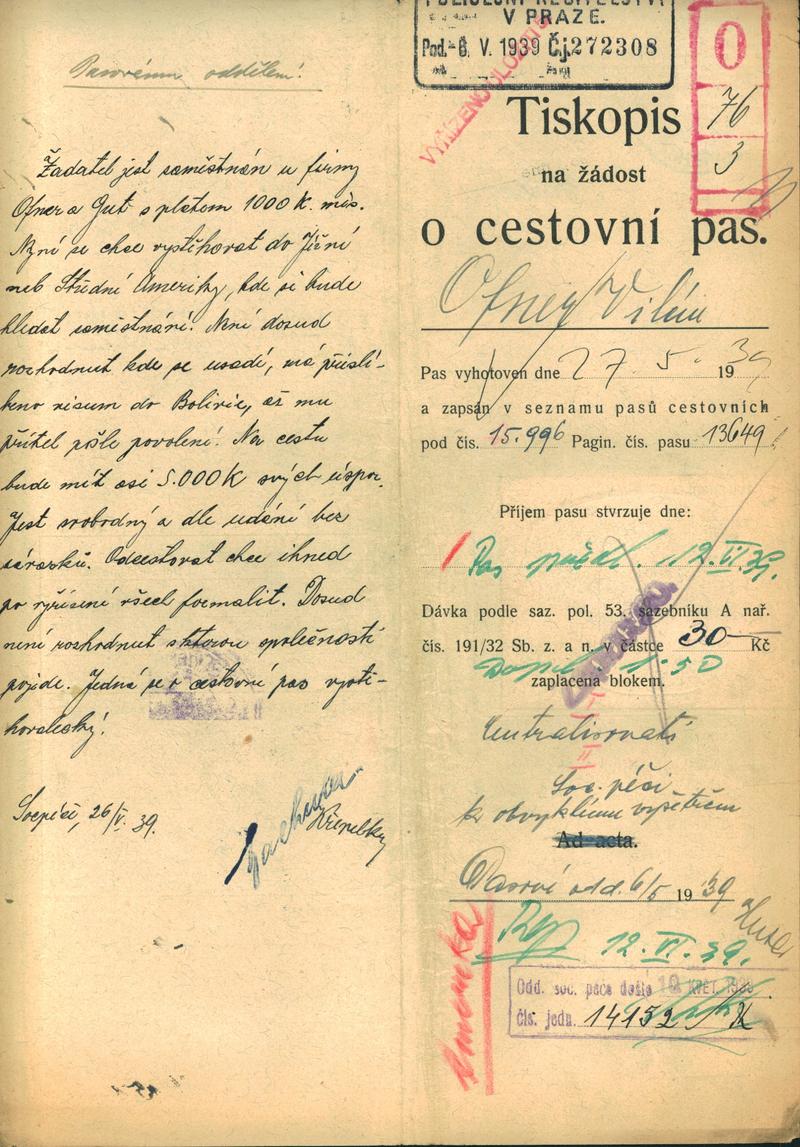 Pasovému oddělení!
Žadatel jest zaměstnán u firmy
Ofner a Gut s platem 1000 K. měs.
Nyní se chce vystěhovat do Jižní
neb Střední Ameriky, kde si bude
hledat zaměstnání. Není dosud
rozhodnut kde se usadí, má přislí-
beno visum do Bolivie, až mu
přítel pošle povolení. Na cestu
bude mít asi 5.000 K svých úspor.
Jest svobodný a dle udání bez
závazků. Odcestovat chce ihned
po vyřízení všech formalit. Dosud
není rozhodnut s kterou společností
pojede. Jedná se o cestovní pas vystě-
hovalecký!
Socpéči, 26/V. 39.
Křepelky
POLICEJNÍ ŘEDITELSTVÍ
V PRAZE.
Pod. 6. V. 1939 Čj. 272308
VYŘÍZENO
0
76
3
Tiskopis
na žádost
o cestovní pas.
Ofner Vilém
Pas vyhotoven dne 27. 5. 1939
a zapsán v seznamu pasů cestovních
pod čís. 15.996 Pagin. čís. pasu 13649
Příjem pasu stvrzuje dne:
Pas 12. VI. 39.
Dávka podle saz. pol. 53. sazebníku A nař.
čís. 191/32 Sb. z. a n. v částce 30 Kč
1·50
zaplacena blokem.
Centralisovati
II
Soc. péči
k obvyklému vyšetření
Ad acta.
Pasové odd. 6/5 1939
12. VI. 39.
Amerika
Odd. soc. péče došlo 10 KVĚT. 1939
čís. jedn. 14152